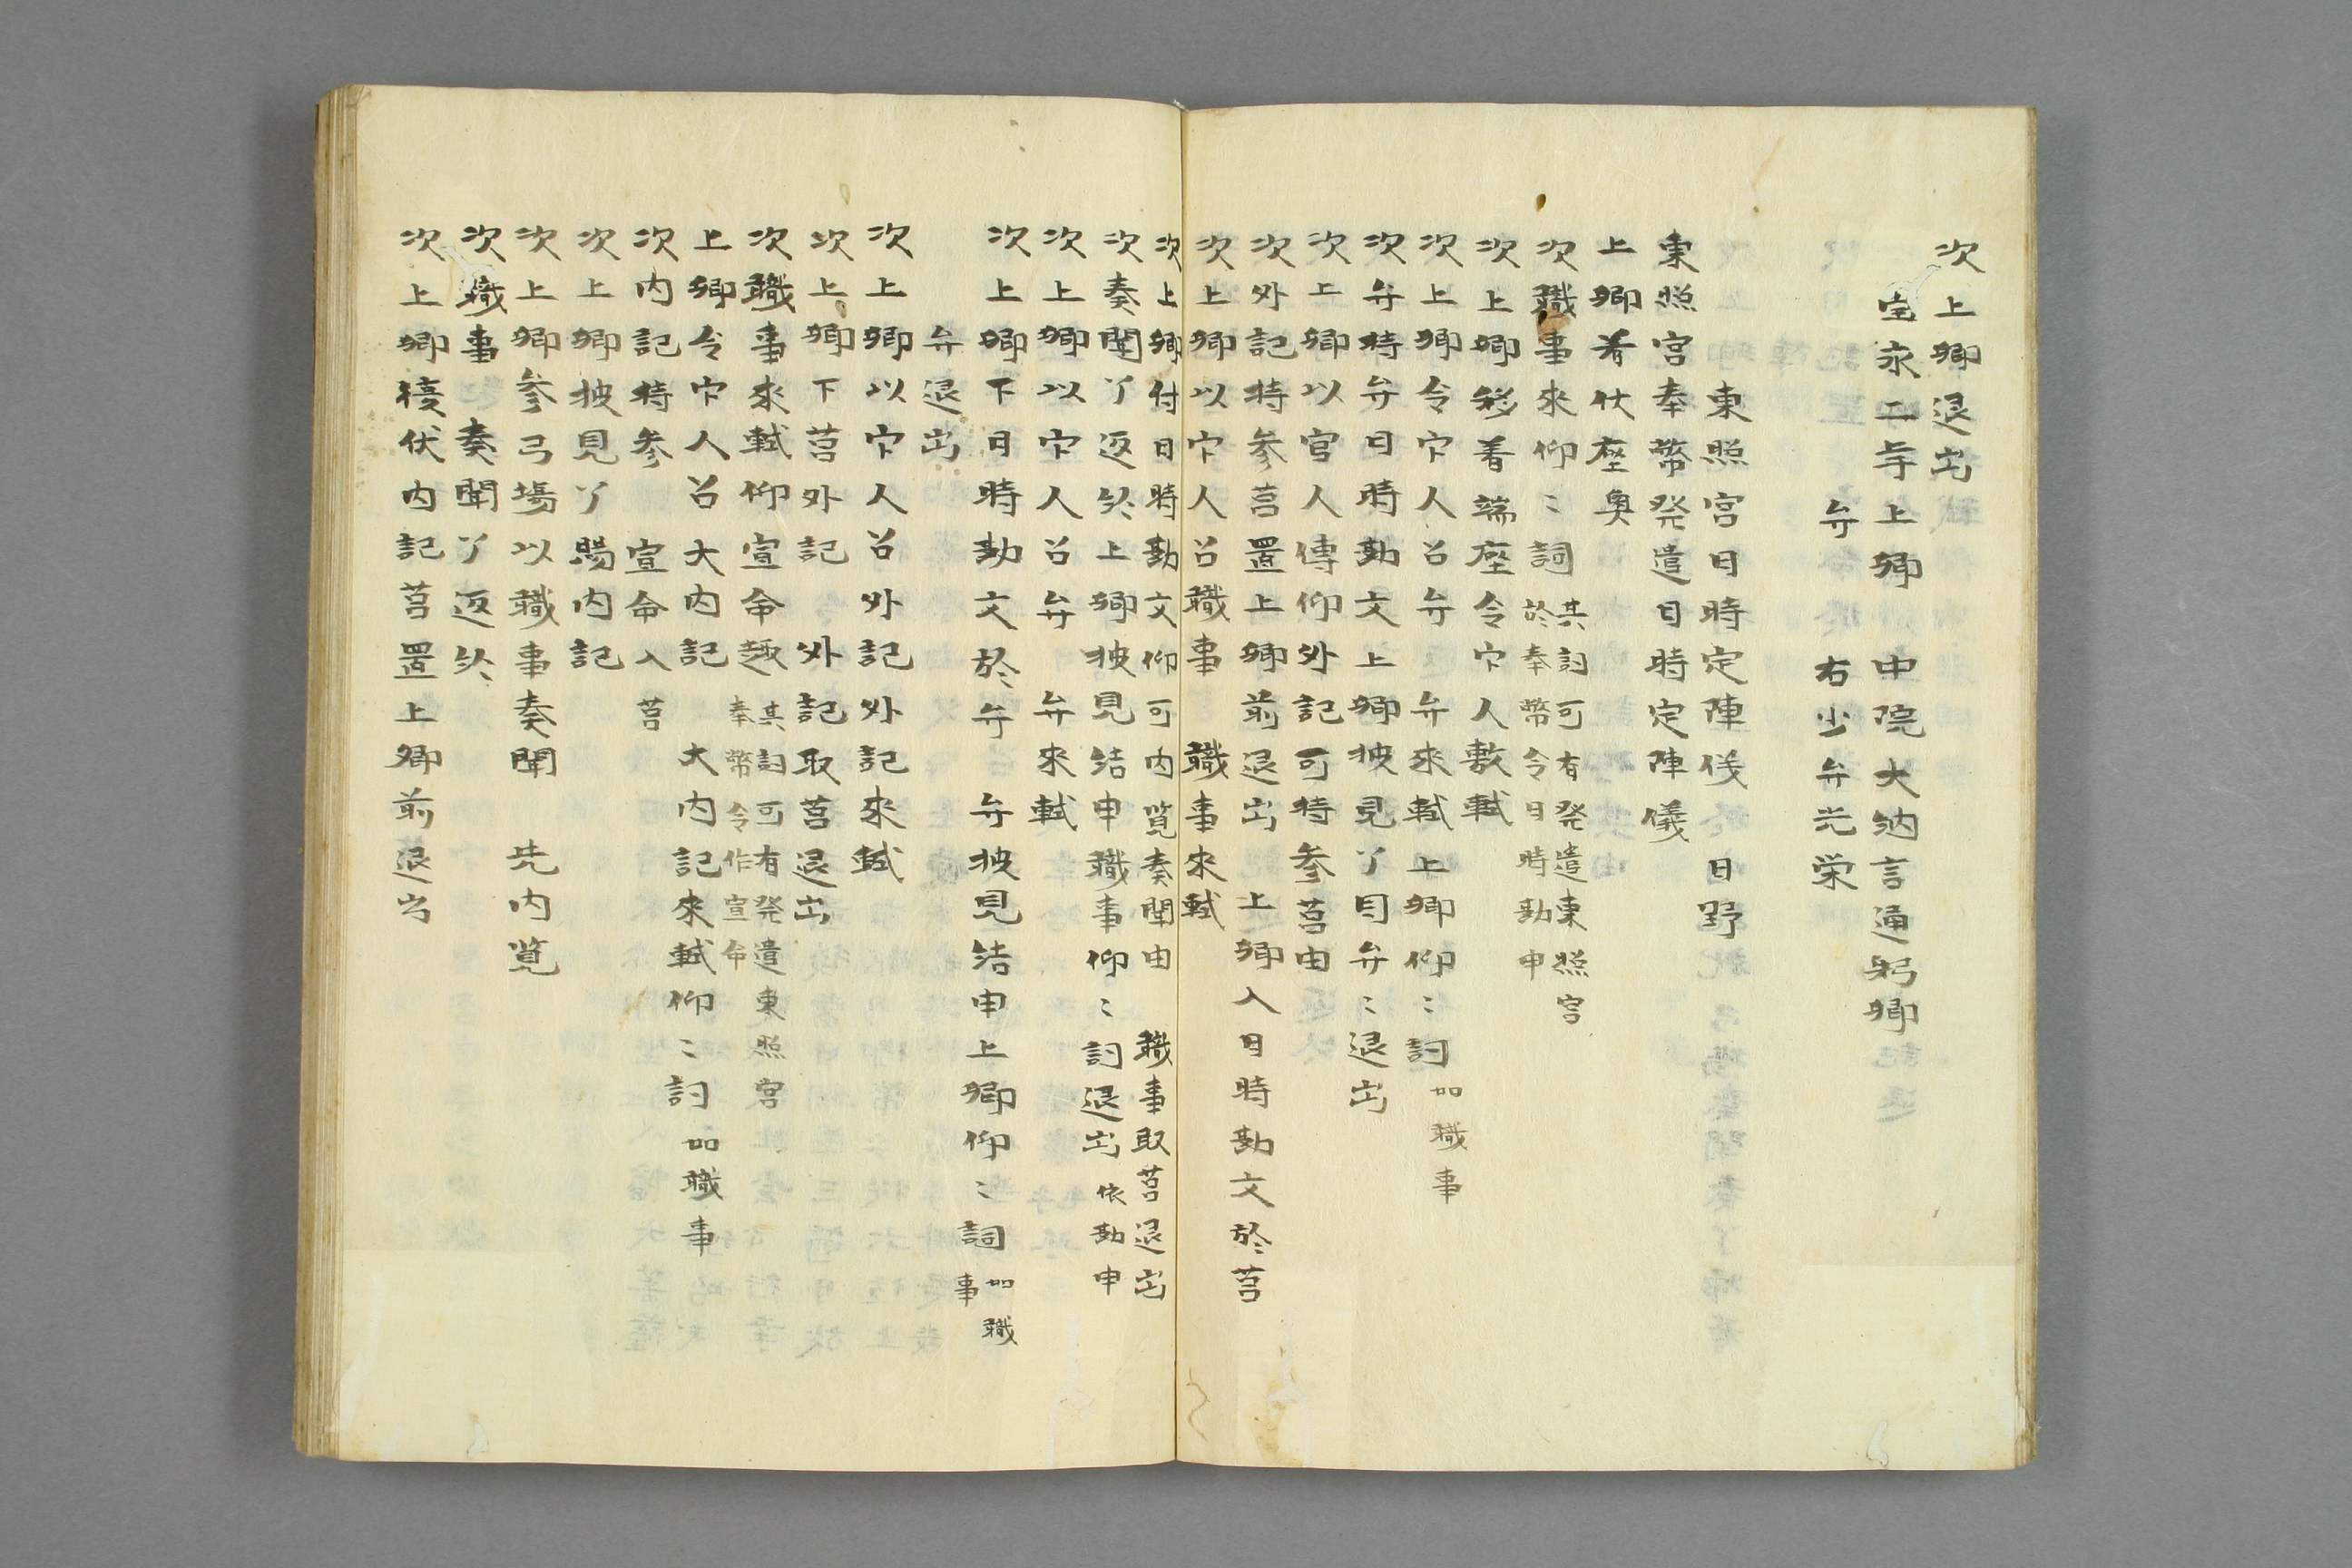 次上卿退出
宝永二年上卿 中院大納言通躬卿
弁 右少弁光栄
東照宮日時定陣儀 日野
東照宮奉幣発遣日時定陣儀
上卿着伏座奥
次職事来仰〻詞 其詞可有発遣東照宮
於奉幣令日時勘申
次上卿移着端座令官人敷軾
次上卿令官人召弁 弁来軾上卿仰〻詞 如職事
次弁持弁日時勘文上卿披見了目弁〻退出
次上卿以官人傳仰外記可持参筥由
次外記持参筥置上卿前退出 上卿入日時勘文於筥
次上卿以官人召職事 職事来軾
次上卿付日時勘文仰可内覧奏聞由 職事取筥退出
次奏聞了返給上卿披見結申職事仰〻詞退出 依勘申
次上卿以官人召弁 弁来軾
次上卿下日時勘文於弁 弁披見結申上卿仰〻詞 如職
事
弁退出
次上卿以官人召外記外記来軾
次上卿下筥外記 外記取筥退出
次職事来軾仰宣命趣 其詞可有発遣東照宮
奉幣令作宣命
上卿令官人召大内記 大内記来軾仰〻詞 如職事
次内記持参 宣命入筥
次上卿披見了賜内記
次上卿参弓場以職事奏聞 先内覧
次職事 奏聞了返給
次上卿復伏内記筥置上卿前退出